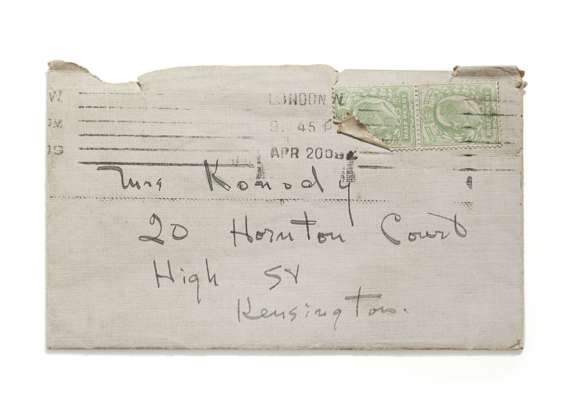 LONDON W.
9. 45 P
APR 20 09
Mrs Konody
20 Hornton Court
High St
Kensington.